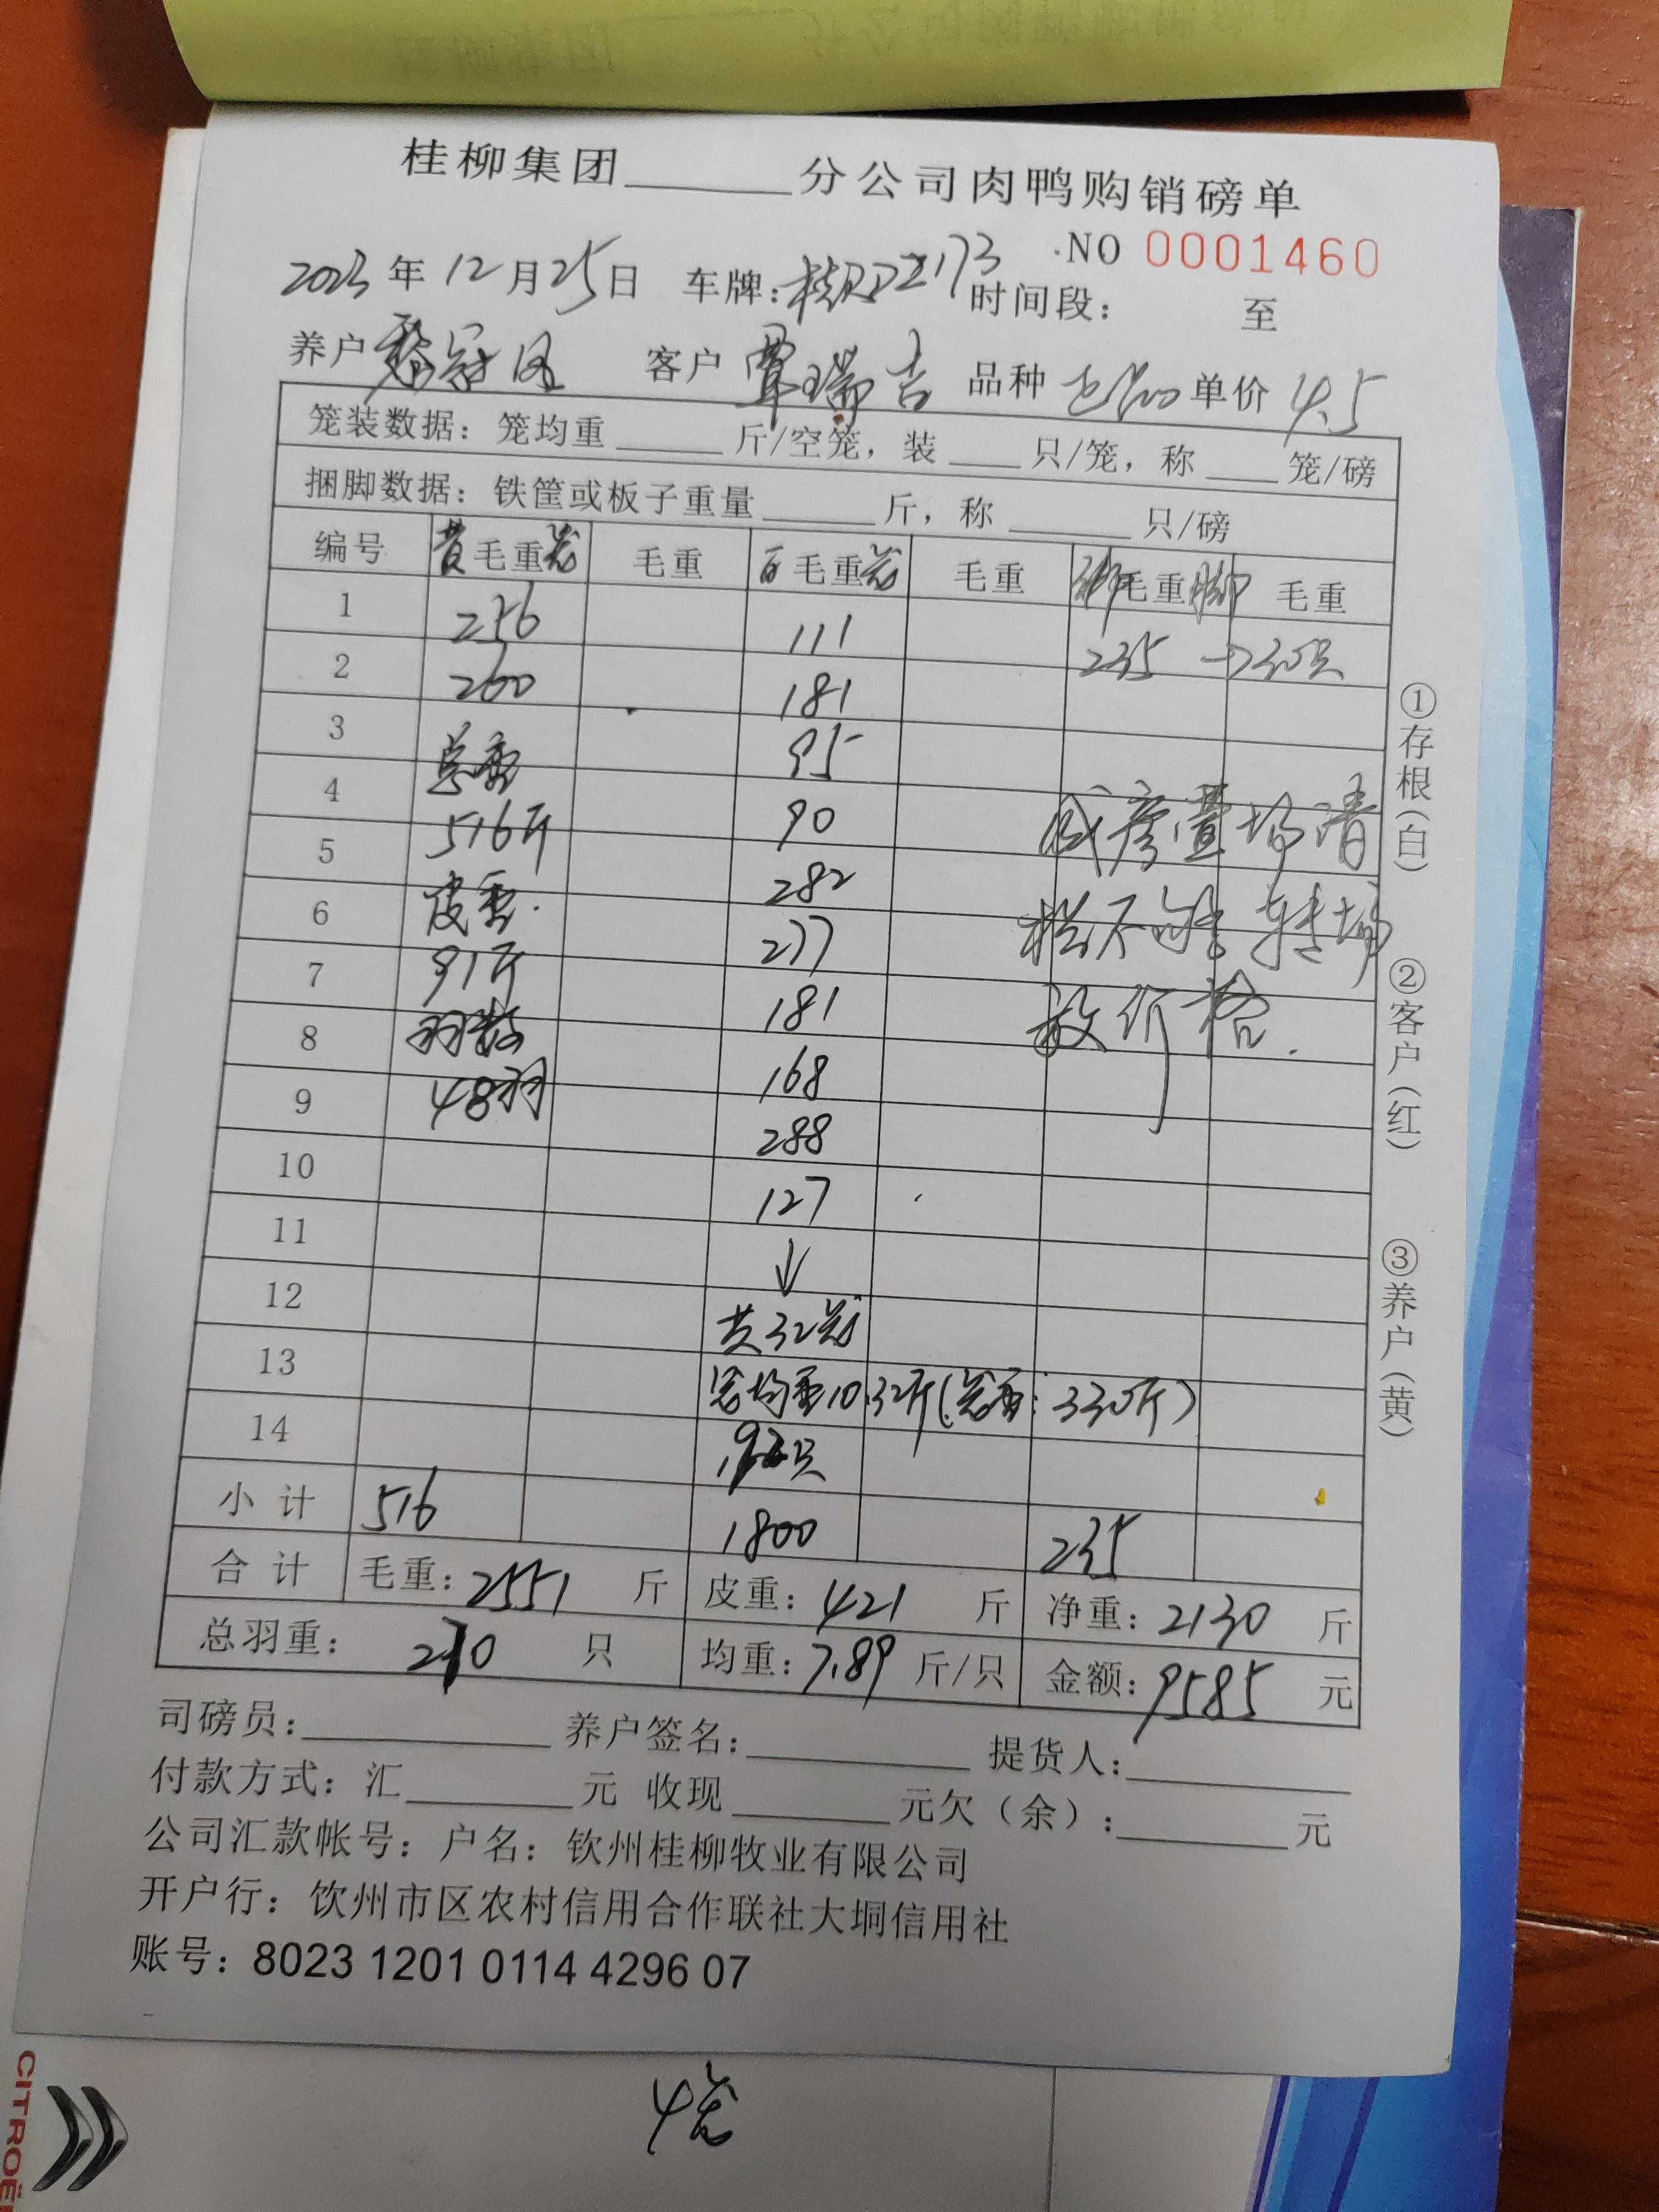 桂柳集团______分公司肉鸭购销磅单
NO 0001460
2023年12月25日 车牌: 时间段: 至
养户 客户 覃瑞吉 品种 单价 4.5
笼装数据: 笼均重______斤/空笼, 装____只/笼, 称____笼/磅
捆脚数据: 铁筐或板子重量______斤, 称______只/磅
编号 黄毛重笼 毛重 白毛重笼 毛重 绑毛重脚 毛重
1 256 111 235 →30只
2 260 181
3 总重 95
4 516斤 90
5 皮重 282
6 91斤 277
7 羽数 181
8 48羽 168
9 288
10 127
11 ↓
12 共32笼
13 笼均重10.32斤(笼重:330斤)
14 192只
场清
栏不能转场
放价格.
小计 516 1800 235
合计 毛重: 2551 斤 皮重: 421 斤 净重: 2130 斤
总羽重: 270 只 均重: 7.89 斤/只 金额: 9585 元
司磅员: 养户签名: 提货人:
付款方式: 汇______元 收现______元欠(余):______元
公司汇款帐号: 户名: 钦州桂柳牧业有限公司
开户行: 饮州市区农村信用合作联社大垌信用社
账号: 8023 1201 0114 4296 07
①存根(白)
②客户(红)
③养户(黄)
4笼
CITROË